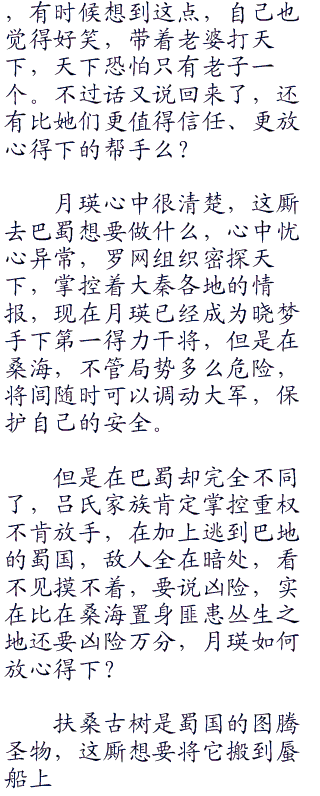 ，有时候想到这点，自己也
觉得好笑，带着老婆打天
下，天下恐怕只有老子一
个。不过话又说回来了，还
有比她们更值得信任、更放
心得下的帮手么？
月瑛心中很清楚，这厮
去巴蜀想要做什么，心中忧
心异常，罗网组织密探天
下，掌控着大秦各地的情
报，现在月瑛已经成为晓梦
手下第一得力干将，但是在
桑海，不管局势多么危险，
将闾随时可以调动大军，保
护自己的安全。
但是在巴蜀却完全不同
了，吕氏家族肯定掌控重权
不肯放手，在加上逃到巴地
的蜀国，敌人全在暗处，看
不见摸不着，要说凶险，实
在比在桑海置身匪患丛生之
地还要凶险万分，月瑛如何
放心得下？
扶桑古树是蜀国的图腾
圣物，这厮想要将它搬到蜃
船上